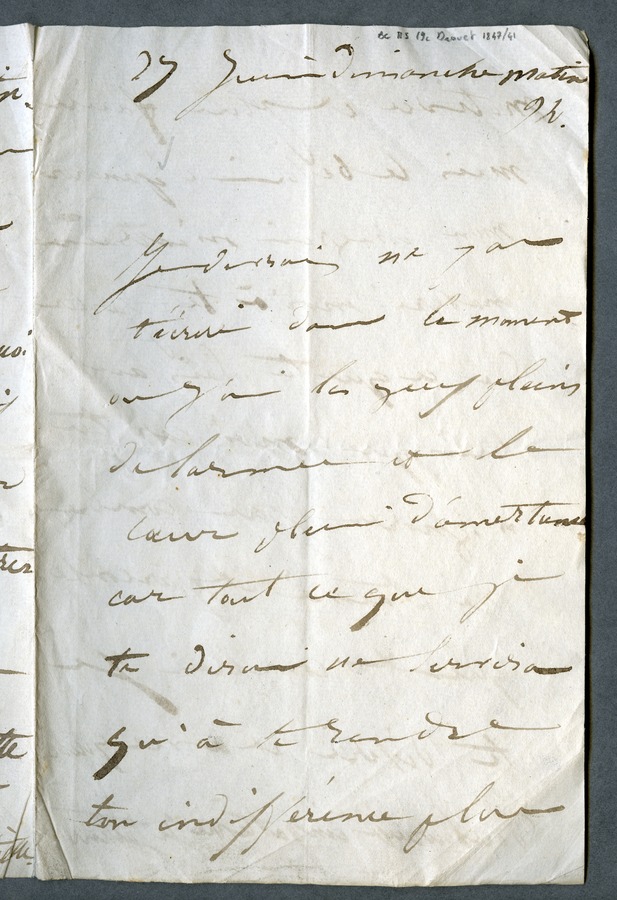 BC MS 19c Drouet 1847/41
27 Juin dimanche matin
9h.
Je devrais ne pas
t'écrire dans le moment
où j'ai les yeux pleins
de larmes et le
cœur plein d'amertume
car tout ce que je
te dirai ne servira
qu'à te rendre
ton indifférence plus